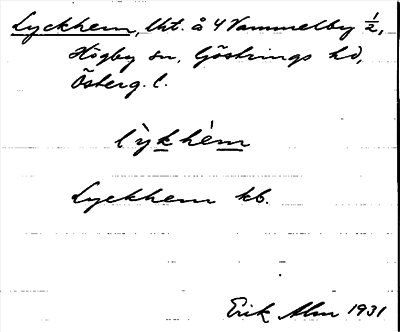 Lyckhem, lht. å 4 Vammelby 1/2,
Högby sn, Göstrings hd,
Österg. l.
l`ykhèm
Lyckhem kb.
Erik Alm 1931